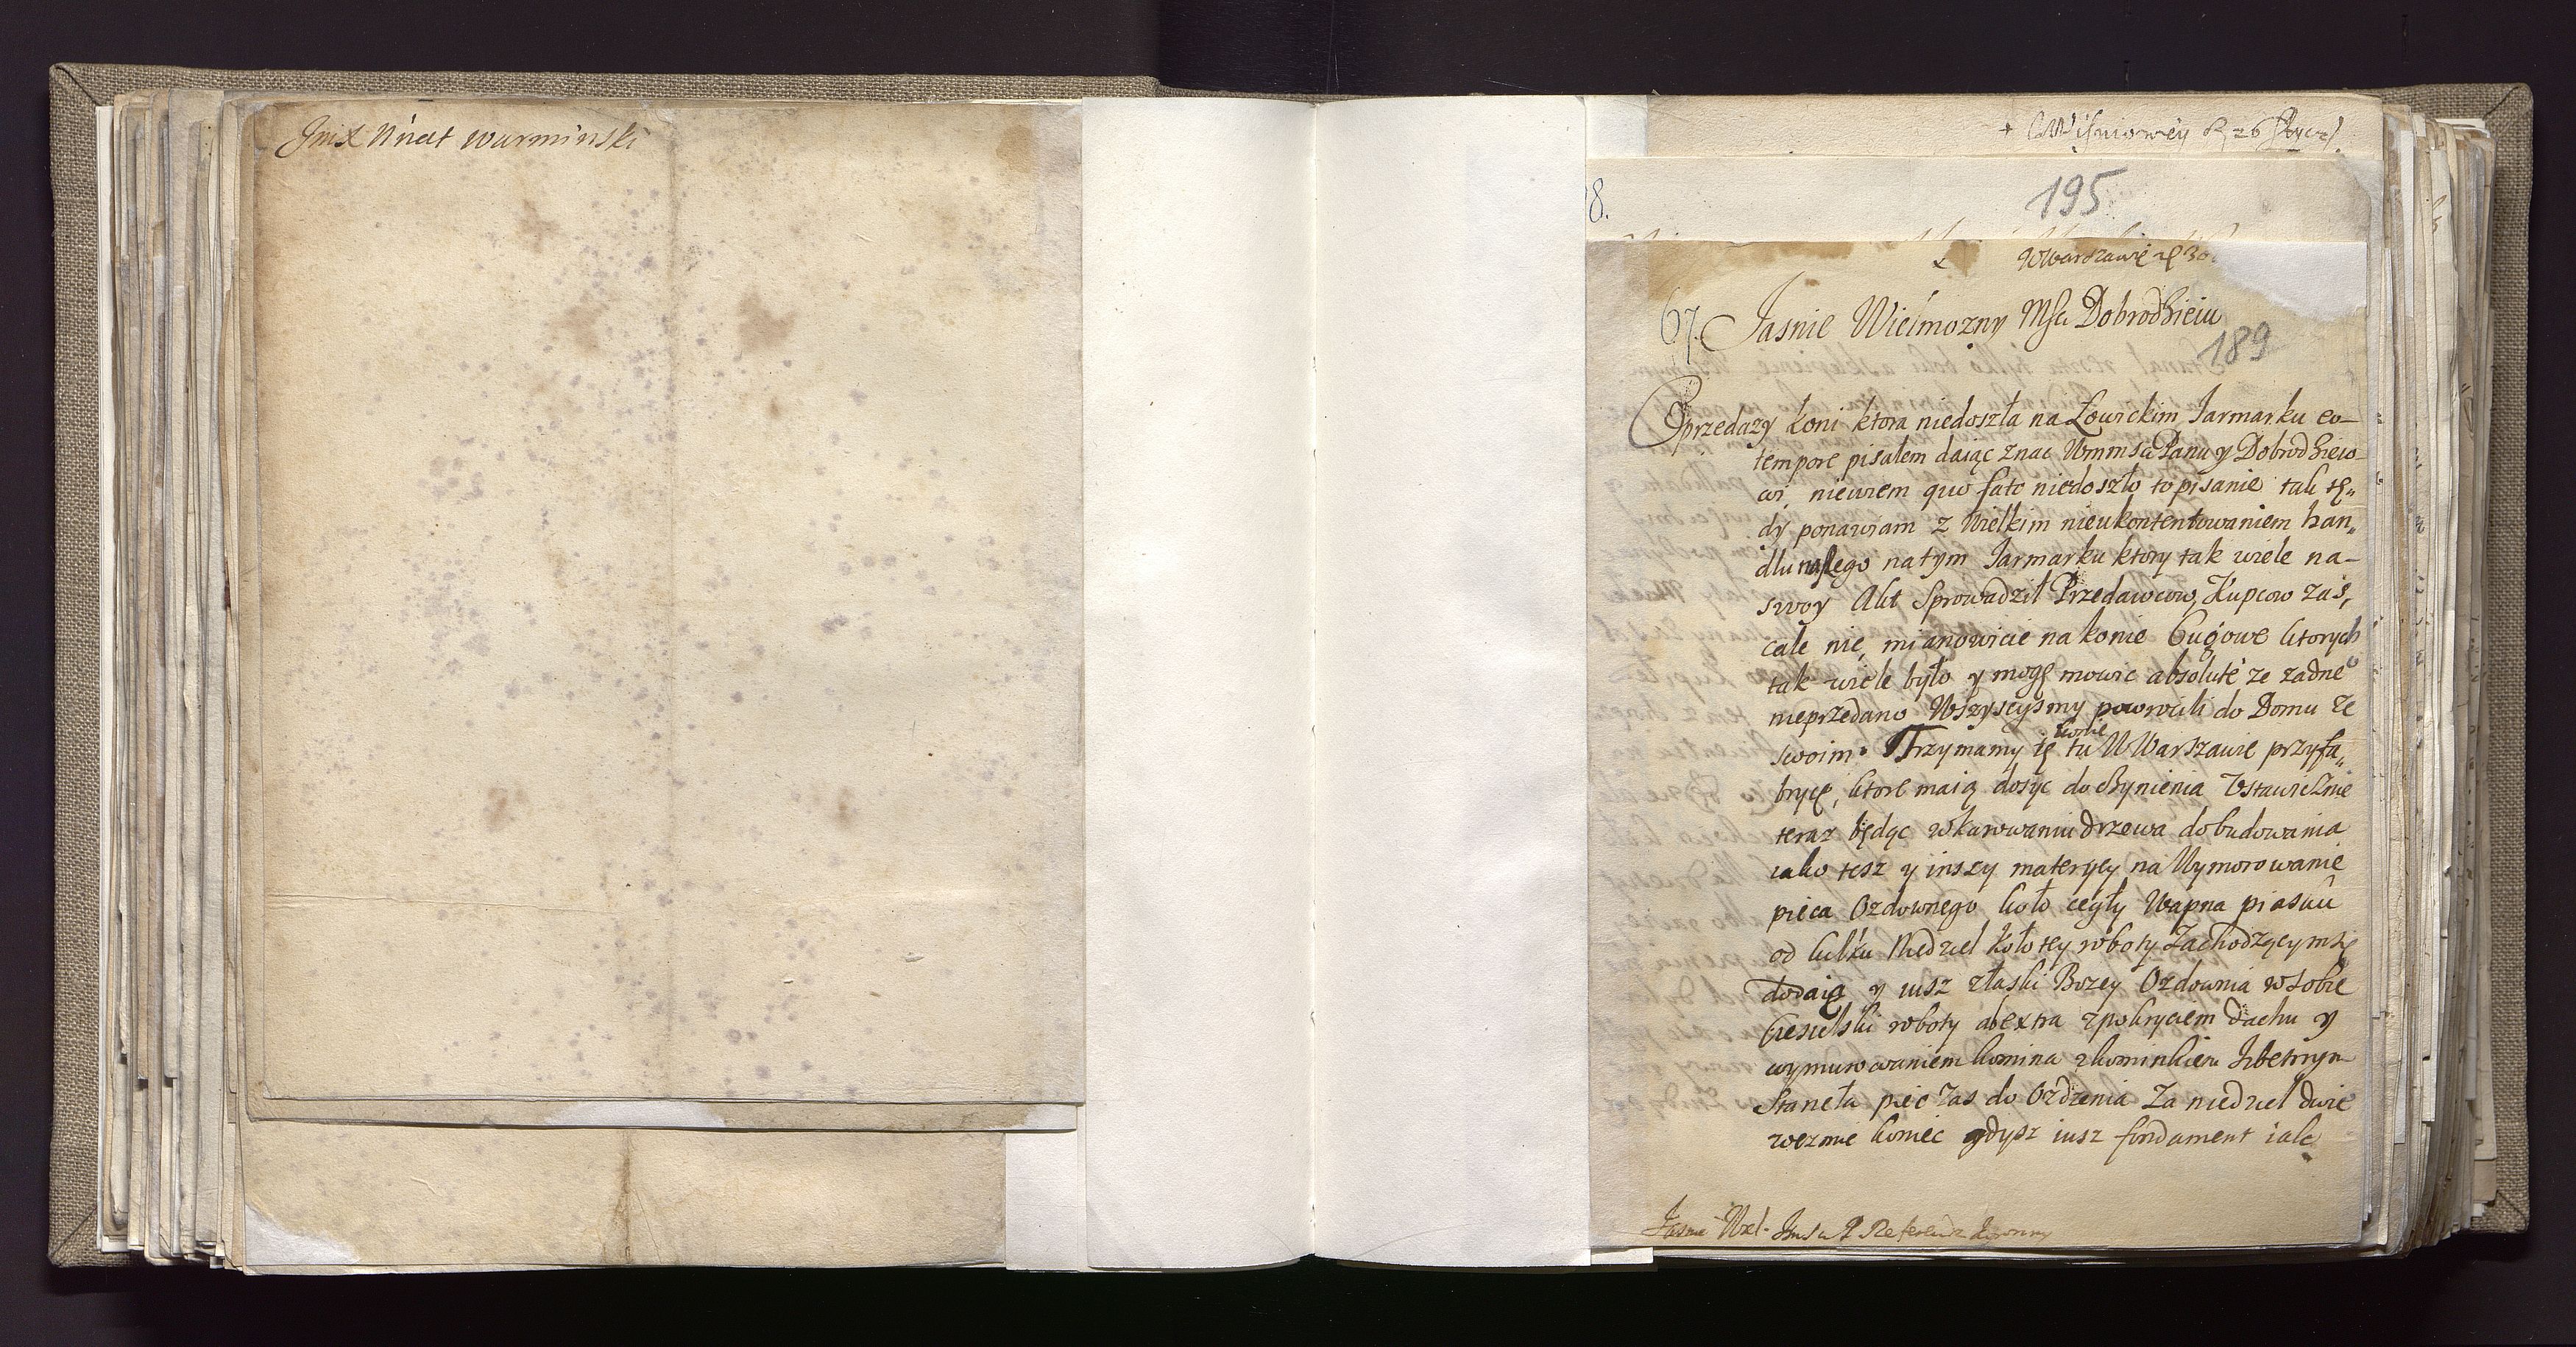 Jmć X Nuct warminski
+ W Wisniowey D 26
8.
195
+ W Warszawie D 30
67. Jasnie Wielmozny Msci Dobrodzieiu
189
O przedazy koni ktora niedoszła na Łowickim Jarmarku eo-
tempore pisałem daiąc znac Wmmsci Panu y Dobrodziew-
wi niewiem quo fato niedoszło to pisanie tak tę„
dy ponawiam z Wielkim nieukontentowaniem han„
dlu naszego na tym Jarmarku ktory tak wiele na-
swoy Akt Sprowadził Przedawcow, Kupcow zas,
cale nie, mianowicie na konie Cugowe ktorych
tak wiele było y mogę mowic absoluté ze zadne°
nieprzedano Wszyscysmy powrocili do Domu ze
swoim. Trzymamy ię konie tu W Warszawie przy fa„
bryce, ktore maią dosyc do czynienia Vstawicznie
teraz będąc w karowaniu drzewa do budowania
iako tesz y inszy materyey na Wymorowanie
pieca Ozdownego koło cegły Wapna piasku
od kilku Niedziel koło tey roboty Zachodzącym się
dodaią y iusz z łaski Bozey Ozdownia w sobie
Ciesielski roboty ab extra z pokryciem dachu y
wymurowaniem komina z kominkiem Izbetnym
Staneła piec zas do Ozdzenia Za niedziel dwie
wezmie koniec gdysz iusz fondament iale
Jasnie Wiel. Jmsci P Referendz Koronny